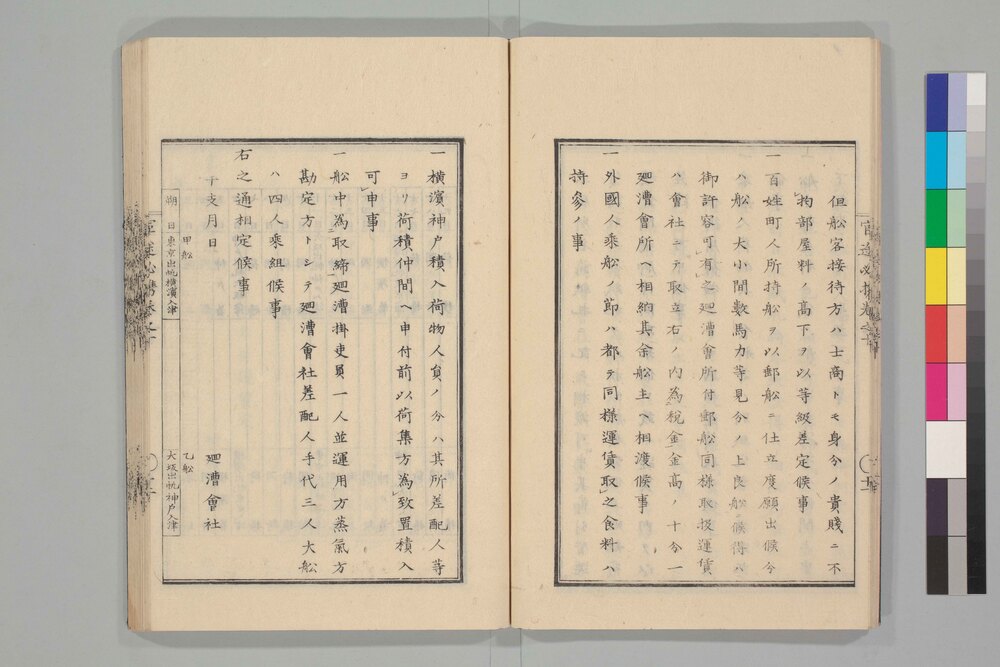 但船客接待方ハ士商トモ身分ノ貴賤ニ不
拘部屋料ノ高下ヲ以等級差定候事
一百姓町人所持船ヲ以郵船ニ仕立度願出候今
ハ船ノ大小間数馬力等見分ノ上良船ニ候得ハ
御許容可有之廻漕會所付郵船同様取扱運賃
ハ會社ニテ取立右ノ内為税金金高ノ十分一
廻漕會所ヘ相納其余船主ヘ相渡候事
一外國人乗船ノ節ハ都テ同様運賃取之食料ハ
持参事
一横濱神戸積入荷物人負ノ分ハ其所差配人等
ヨリ荷積仲間ヘ申付前以荷集方為致置積入
可申事
一船中為取締廻漕掛吏員一人並運用方蒸氣方
勘定方トシテ廻漕會社差配人手代三人大船
ハ四人乗組候事
右之通相定候事
干支月日
廻漕會社
甲船
乙船
朔日東京出帆横濱入津
大坂出帆神戸入津